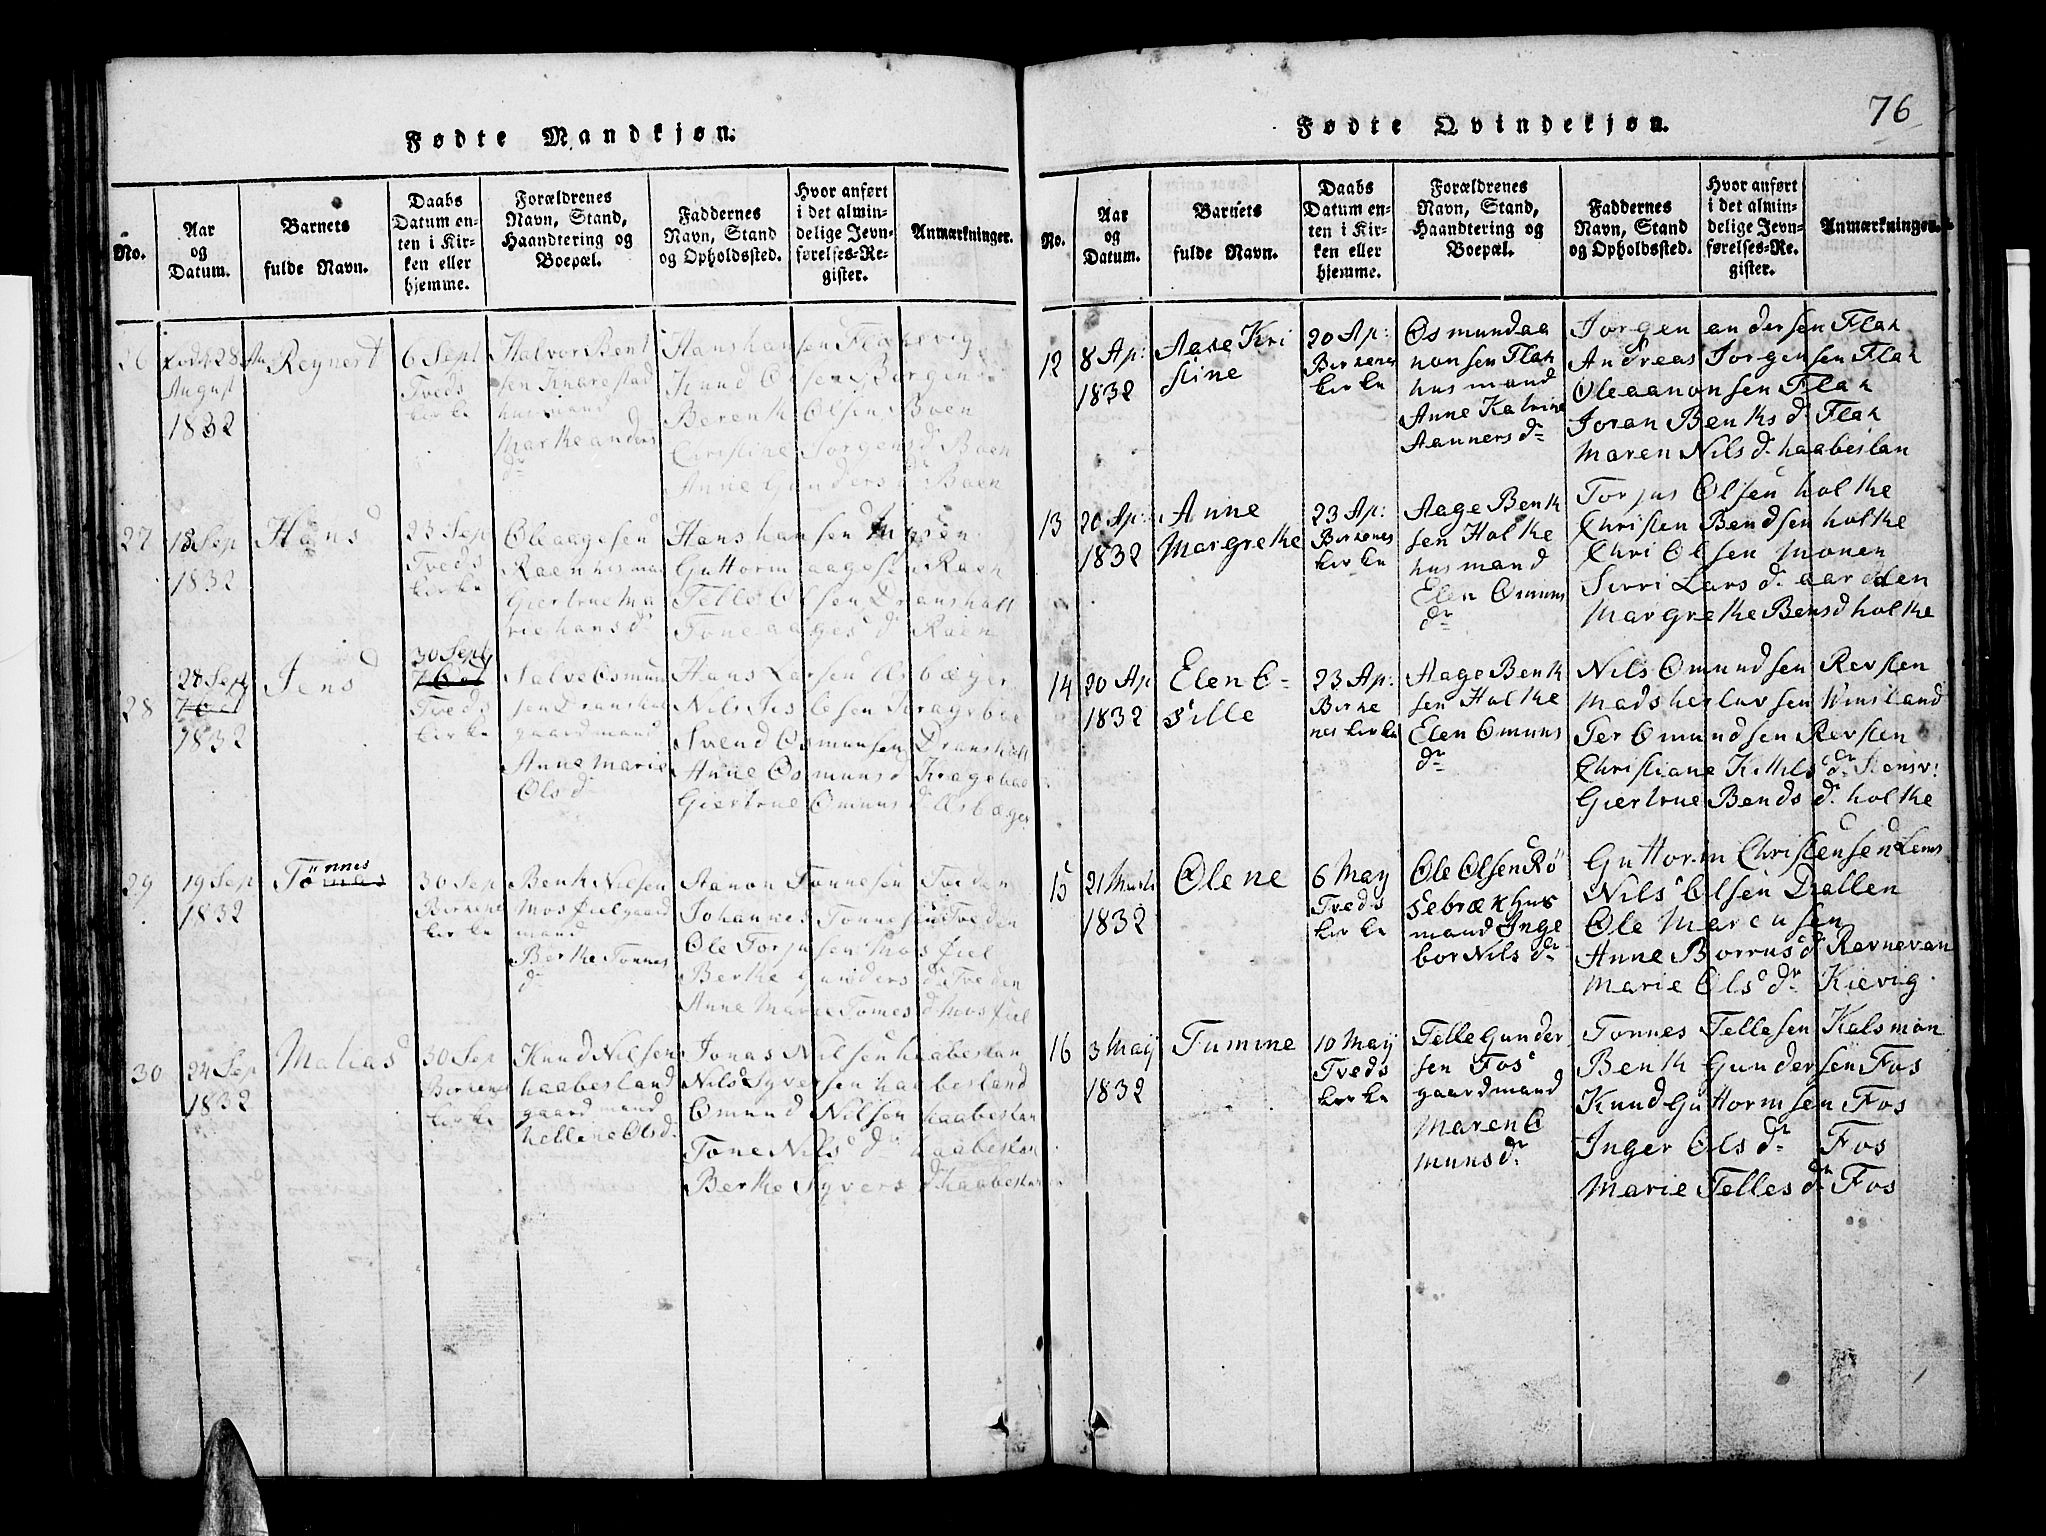 76
Fødte Mandkjøn.
No.
Aar
og
Datum.
Barnets
fulde Navn.
Daabs
Datum en-
ten i Kir-
ken eller
hjemme.
Forældrenes
Navn, Stand,
Haandtering og
Boepæl.
Faddernes
Navn, Stand
og Opholdssted.
Hvor anført
i det almin-
delige Jevn-
førelses-Re-
gister.
Anmærkninger.
26
28
August
1832
Reynert
6 Sept
Treds
kirke
Halvor Bent
sen Knarestad
husmand
Marthe anders
dr
Hans hansen Flakevig
Knud Olsen Borgen
Berent Olsen Boen
Christine Jorgens dr Boen
Anne Gunders d Boen
27
18 Sep
1832
Hans
23 Sep
Treds
kirke
Ole aagesen
Raen husman
Giertrue Ma
rie hans dr
Hans hansen
Guttorm aagesen Raen
Telle Olsen Dransholt
Tone aages d Raen
28
28 Sept
1832
Jens
30 Sept
Treds
kirke
Salve Osmun
sen Dranshol
gaardmand
Anne Marie
Ols d
Hans Larsen Esbæger
Nils Nislesen Krageboe
Svend Osmunsen Dransholt
Anne Osmunsd Krageboe
Giertrue Omuns d Esbæger
29
19 Sep
1832
Tönnes
30 Sep
Birkene
kirke
Bent Nilsen
Mosfiel gaard
mand
Berthe Tonnes
d
Aanon Tonnesen Tveden
Johannes Tonnesen Tveden
Ole Torjusen Mosfiel
Berthe Gunders d Tveden
Anne Marie Tomes d Mosfiel
30
24 Sep
1832
Matias
30 Sep
Birkenes
kirke
Knud Nilsen
haabesland
gaardmand
helline Ols d
Jonas Nilsen haabeslan
Nils Syversen haabesland
Omund Nilsen haabeslan
Tone Nils dr haabeslan
Berthe Syvers d haabeslan
Fødte Qvindekjøn.
No.
Aar
og
Datum.
Barnets
fulde Navn.
Daabs
Datum en-
ten i Kir-
ken eller
hjemme.
Forældrenes
Navn, Stand,
Haandtering og
Boepæl.
Faddernes
Navn, Stand
og Opholdssted.
Hvor anført
i det almin-
delige Jevn-
førelses-Re-
gister.
Anmærkninger.
12
8 Ap:
1832
Aase Kri
stine
20 Ap:
Birkenes
kirke
Osmund aa
nonsen Flak
husmand
Anne Katrine
Aanners dr
Jorgen andersen Flak
Andreas Jorgensen Flak
Ole aanonsen Flak
Joran Benths d Flak
Maren Nils d haabeslan
13
20 Ap:
1832
Anne
Margrethe
23 Ap:
Birkenes
kirke
Aage Bent
sen Holthe
husmand
Elen Omuns
dr
Torjus Olsen holthe
Christen Bendsen holthe
Chri Olsen Monen
Sirri Lars d aardalen
Margrethe Bensd holthe
14
20 Ap
1832
Elen O-
sille
23 Ap:
Birke
nes kirke
Aage Bent
sen Holthe
Elen Omuns
dr
Nils Omundsen Revsten
Mads herlufsen Winsland
Ter Omundsen Revsten
Christiane Kittils dr Stensv:
Giertrue Bends d holthe
15
21 Marts
1832
Olene
6 May
Treds
kirke
Ole Olsen Rø
sebræk hus
mand Inge
bor Nils dr
Guttorm Christensen Lems
Nils Olsen Drallen
Ole Marcusen
Anne Borrus d Revnevan
Marie Ols dr Kievig
16
3 May
1832
Tumine
10 May
Treds
kirke
Telle Gunder
sen Fos
gaardmand
Maren O
muns dr
Tonnes Tellesen Kalsmon
Benth Gundersen Fos
Knud Guttormsen Fos
Inger Ols dr Fos
Marie Telles dr Fos